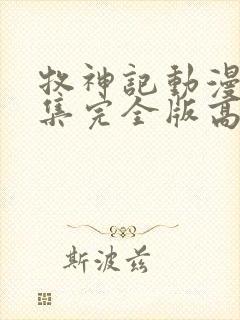 牧神記動漫
集完全版高
斯波茲